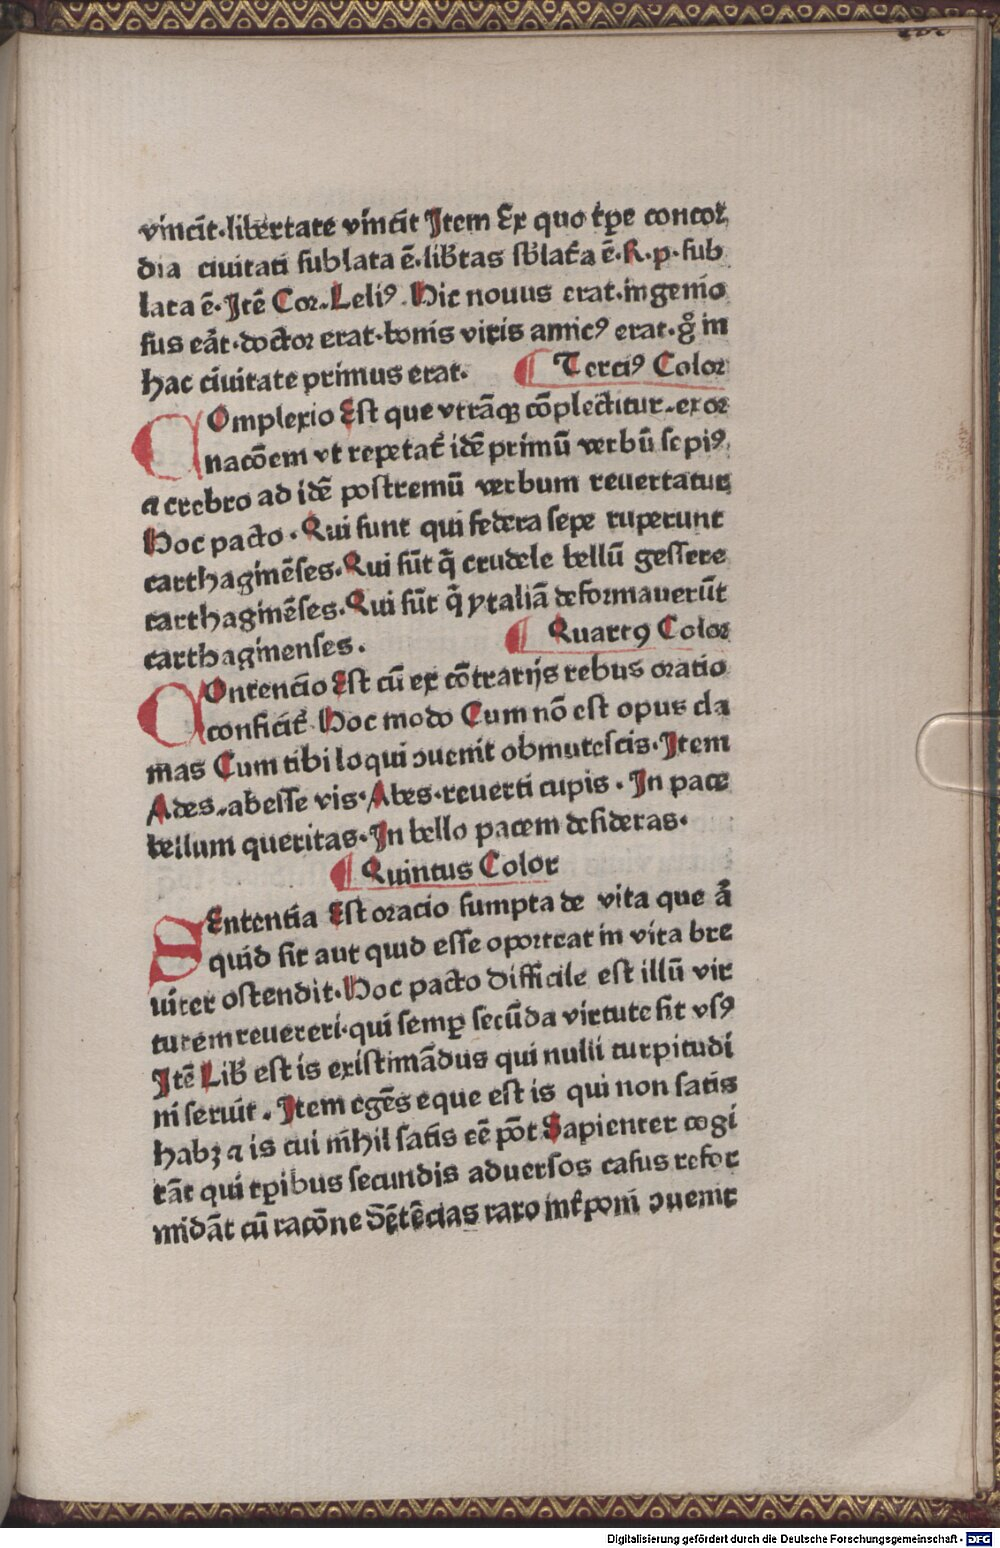 vincit̄·libertate vincit Item Ex quo tp̄e concor
dia ciuitati sublata ē·lib̄tas sb̄lat̄a ē·R·p·sub
lata ē·Itē Cor·Leliꝰ·Hic nouus erat·ingenio
sus eāt·doctor erat·bonis viris amicꝰ erat·gͦ in
hac ciuitate primus erat·
¶ Terciꝰ Color
COmplexio Est que vtrāqꝫ cōplectitur·exor
nacōem vt repetat̄ idē primū verbū sepiꝰ
⁊ crebro ad idē postremū verbum reuertatur
Hoc pacto·Qui sunt qui federa sepe ruperunt
carthaginēses·Qui sūt q̄ crudele bellū gessere
carthaginēses·Qui sūt q̄ ytaliā deformauerūt
carthaginenses·
¶ Quartꝰ Color
COntencio Est cū ex cōtrarijs rebus oratio
conficit̄ Hoc modo Cum nō est opus cla
mas Cum tibi loqui ꝯuenit obmutescis·Item
Ades·abesse vis·Abes·reuerti cupis·In pace
bellum queritas·In bello pacem desideras·
¶ Quintus Color
SEntentia Est oracio sumpta de vita que ā
quid sit aut quid esse oporteat in vita bre
uiter ostendit·Hoc pacto difficile est illū vir
tutem reuereri·qui semꝑ secūda virtute sit vsꝰ
Itē Lib̄ est is existimādus qui nulli turpitudi
ni seruit·Item egēs eque est is qui non satis
habꝫ ⁊ is cui nihil satis eē pōt Sapienter cogi
tāt qui tꝑibus secundis aduersos casus refor
midāt cū racōne Sētēcias raro int̄poni ꝯuenit
Digitalisierung gefördert durch die Deutsche Forschungsgemeinschaft - DFG